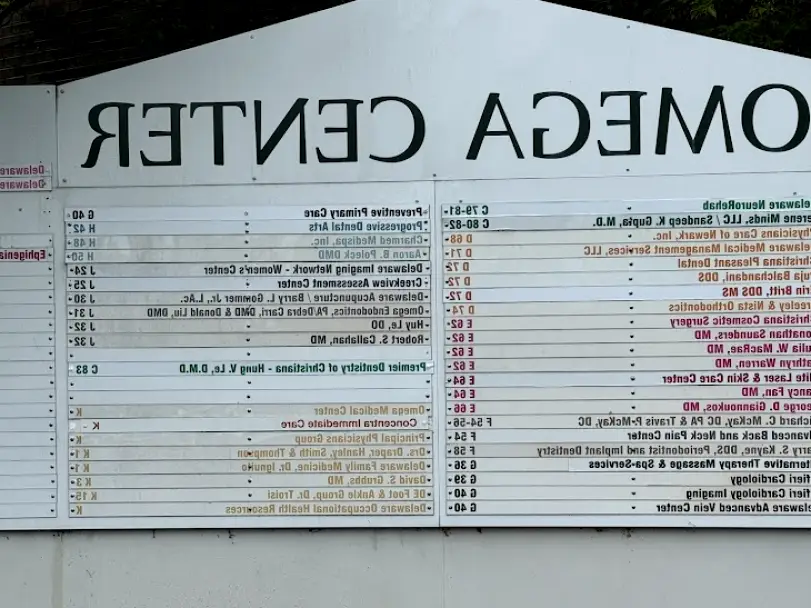 OMEGA CENTER
elaware NeuroRehab C 79-81
erene Minds, LLC / Sandeep K. Gupta, M.D. C 80-82
hysicians Care of Newark, Inc. D 68
elaware Medical Management Services, LLC D 71
hristiana Pleasant Dental D 72
uja Balchandani, DDS D 72
rin Britt, DDS MS D 72
reeley & Nista Orthodontics D 74
hristiana Cosmetic Surgery E 62
onathan Saunders, MD E 62
ulia W. MacRae, MD E 62
athryn Warren, MD E 62
lite Laser & Skin Care Center E 64
ancy Fan, MD E 64
eorge D. Giannoukos, MD E 66
ichard C. McKay, DC PA & Travis P. McKay, DC F 54-56
dvanced Back and Neck Pain Center F 54
arry S. Kayne, DDS, Periodontist and Implant Dentistry F 58
ternative Therapy Massage & Spa-Services G 36
afieri Cardiology G 39
afieri Cardiology Imaging G 40
elaware Advanced Vein Center G 40
Preventive Primary Care G 40
Progressive Dental Arts H 42
Charmed Medispa Inc. H 48
Aaron B. Poleck DMD H 50
Delaware Imaging Network - Women's Center J 24
Creekview Assessment Center J 25
Delaware Acupuncture / Barry L. Gommer Jr., L.Ac. J 30
Omega Endodontics, PA/Debra Carri, DMD & Donald Liu, DMD J 31
Huy Le, DO J 32
Robert S. Callahan, MD J 32
Premier Dentistry of Christiana - Hung V. Le, D.M.D C 83
Omega Medical Center K
Concentra Immediate Care K
Principal Physicians Group K
Drs. Draper, Hanley, Smith & Thompson K 1
Delaware Family Medicine, Dr. Ignudo K 1
David S. Grubbs, MD K 3
DE Foot & Ankle Group, Dr. Troisi K 15
Delaware Occupational Health Resources K
Delaware
Delaware
Ephigenia